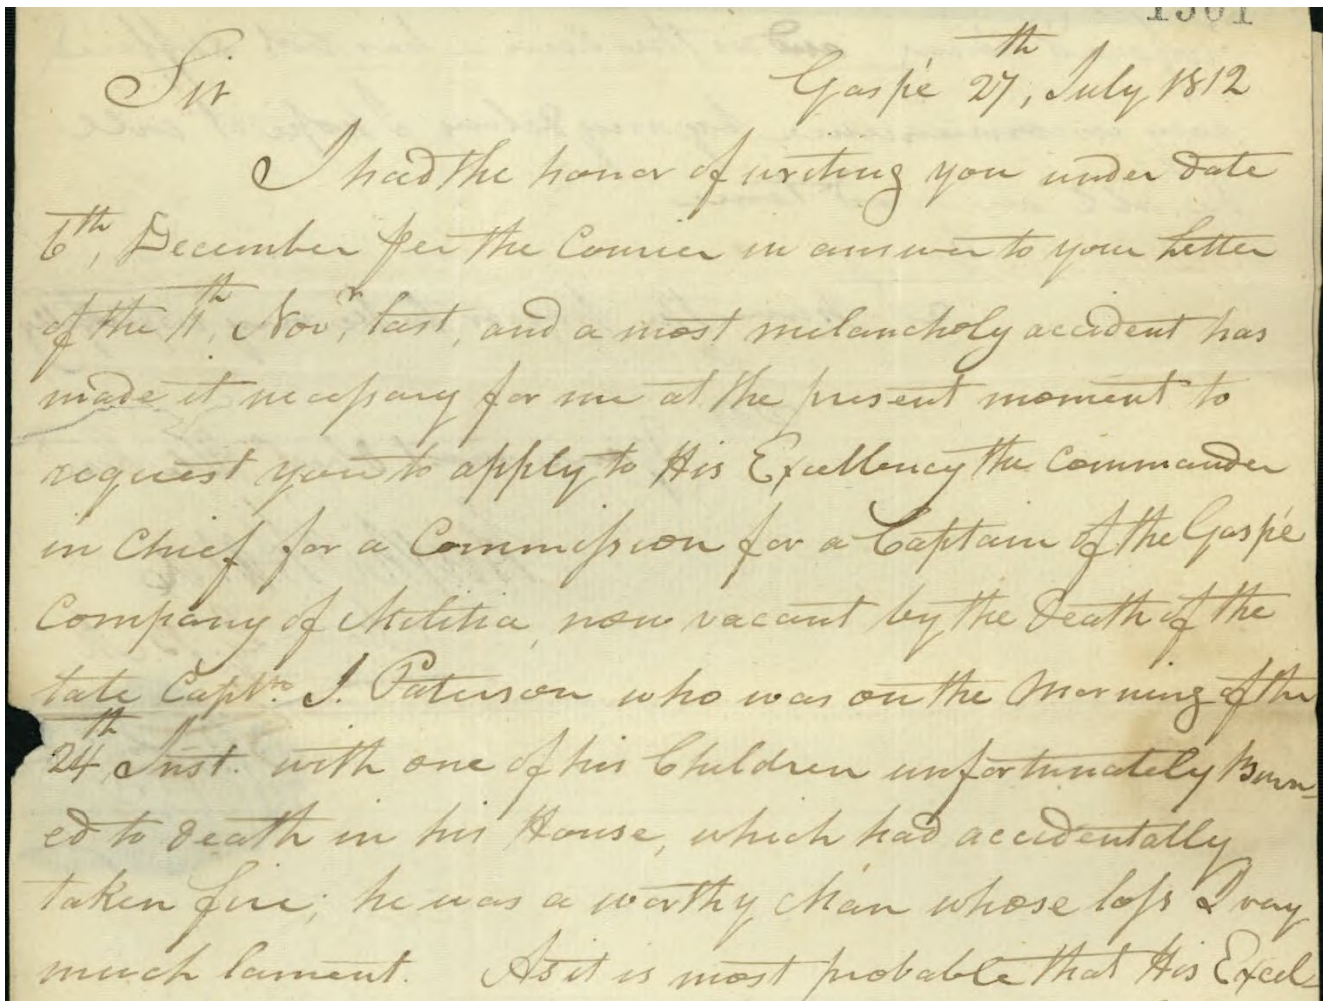 1301
Sir
Gaspé 27th, July 1812
I had the honor of writing you under date
6th, December per the Courier in answer to your Letter
of the 11th, Novr, last, and a most melancholy accident has
made it necessary for me at the present moment to
request you to apply to His Excellency the Commander
in Chief for a Commission for a Captain of the Gaspé
Company of Militia, now vacant by the Death of the
late Captn. J. Paterson who was on the Morning of the
24th, Inst. with one of his Children unfortunately Burn-
ed to death in his House, which had accidentally
taken fire; he was a worthy Man whose loss I very
much lament. As it is most probable that His Excel-